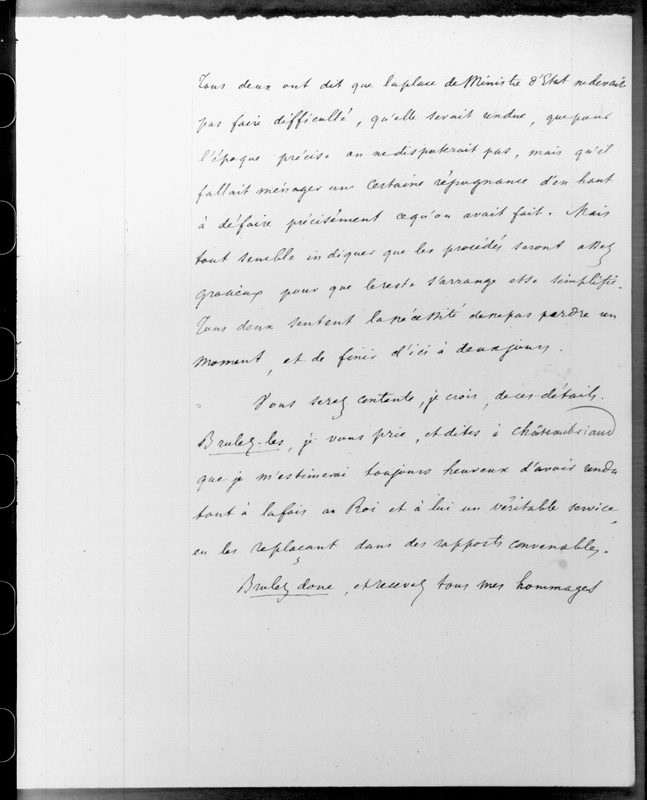 Tous deux ont dit que la place de Ministre d'Etat ne devait
pas faire difficulté, qu'elle serait rendue, que pour
l'époque précise on ne disputerait pas, mais qu'il
fallait ménager une certaine répugnance d'en haut
à défaire précisément ce qu'on avait fait. Mais
tout semble indiquer que les procédés seront assez
gracieux pour que le reste s'arrange et se simplifie.
Tous deux sentent la nécessité de ne pas perdre un
moment, et de finir d'ici à deux jours.
Vous serez contente, je crois, de ces détails.
Brulez-les, je vous prie, et dites à Châteaubriand
que je m'estimerai toujours heureux d'avoir rendu
tout à la fois au Roi et à lui un véritable service,
en les replaçant dans des rapports convenables.
Brulez donc, et recevez tous mes hommages